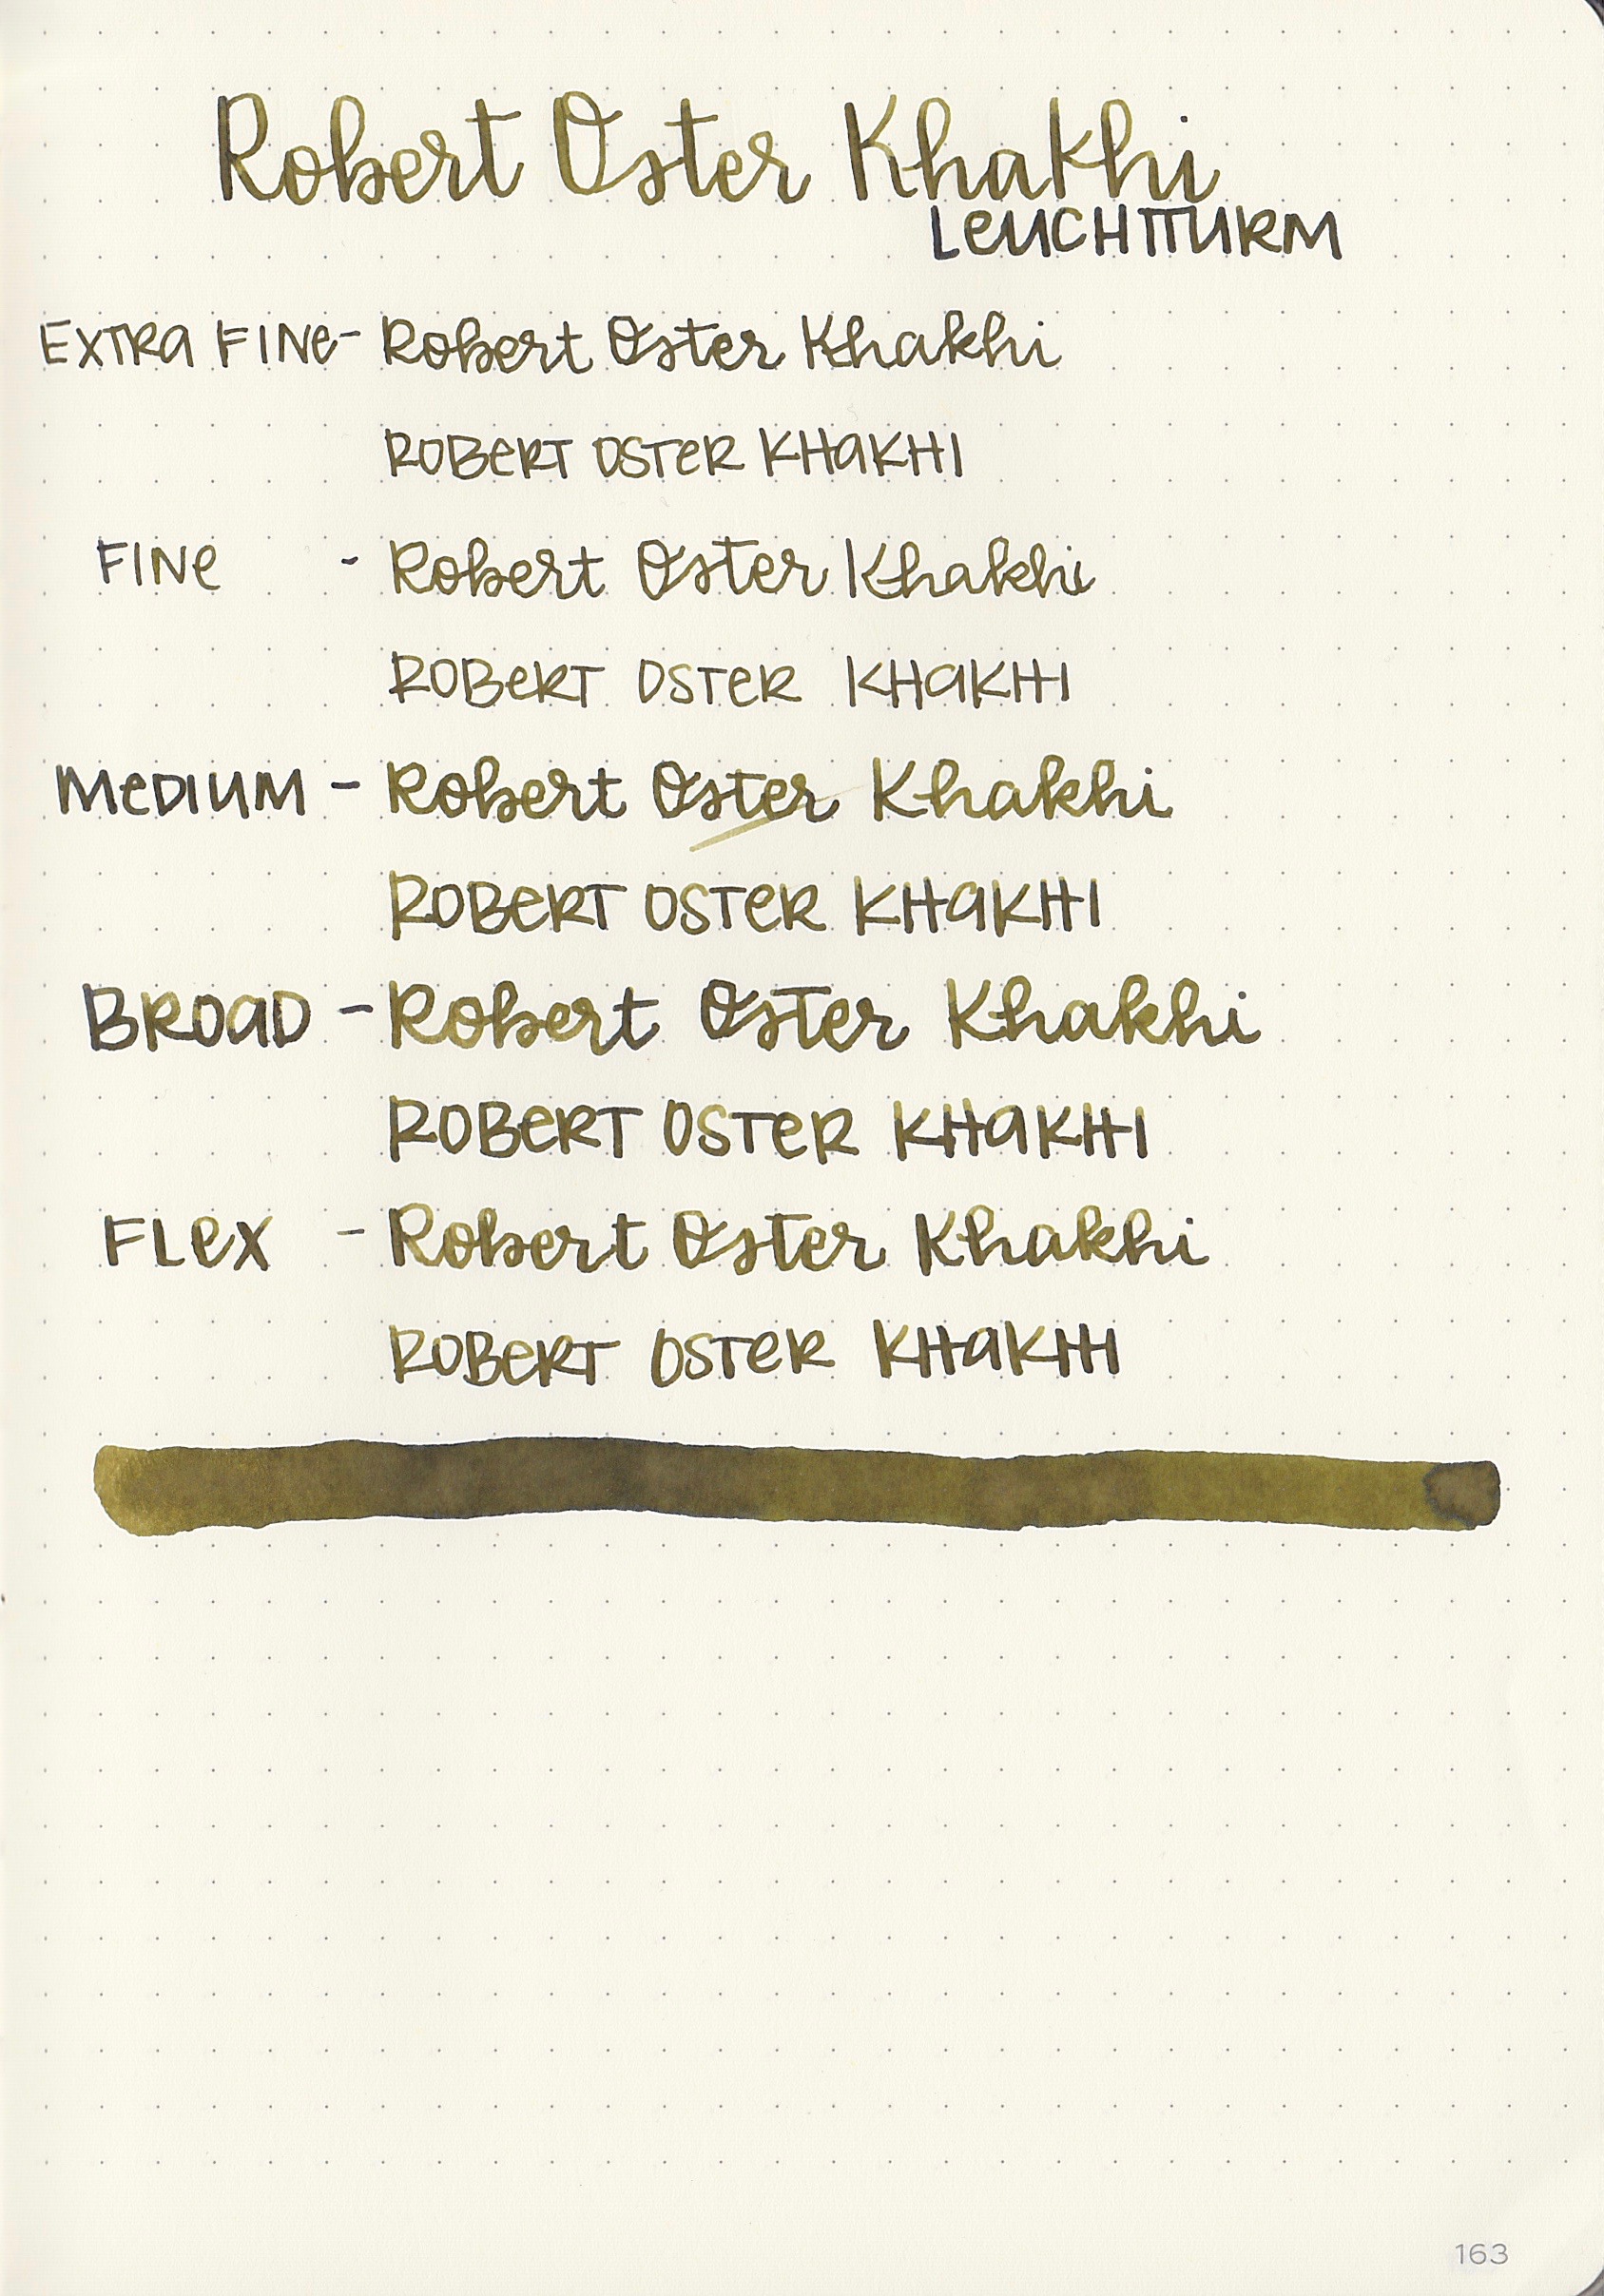 Robert Oster Khakhi
LEUCHTTURM
EXTRA FINE - Robert Oster Khakhi
ROBERT OSTER KHAKHI
FINE - Robert Oster Khakhi
ROBERT OSTER KHAKHI
MEDIUM - Robert Oster Khakhi
ROBERT OSTER KHAKHI
BROAD - Robert Oster Khakhi
ROBERT OSTER KHAKHI
FLEX - Robert Oster Khakhi
ROBERT OSTER KHAKHI
163